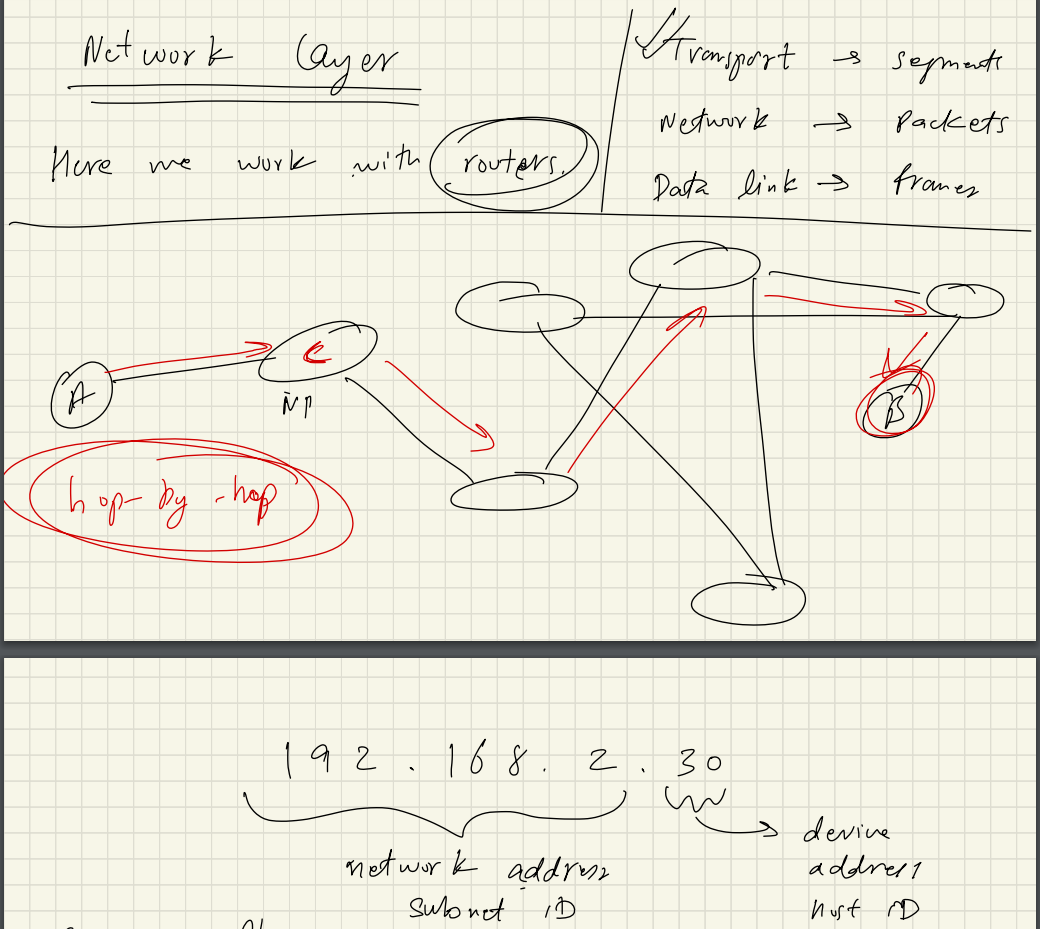 Network Layer
Here we work with routers.
Transport → segments
Network → Packets
Data link → frames
A
C
N1
B
hop-by-hop
192.168.2.30
network address
subnet ID
device
address
host ID